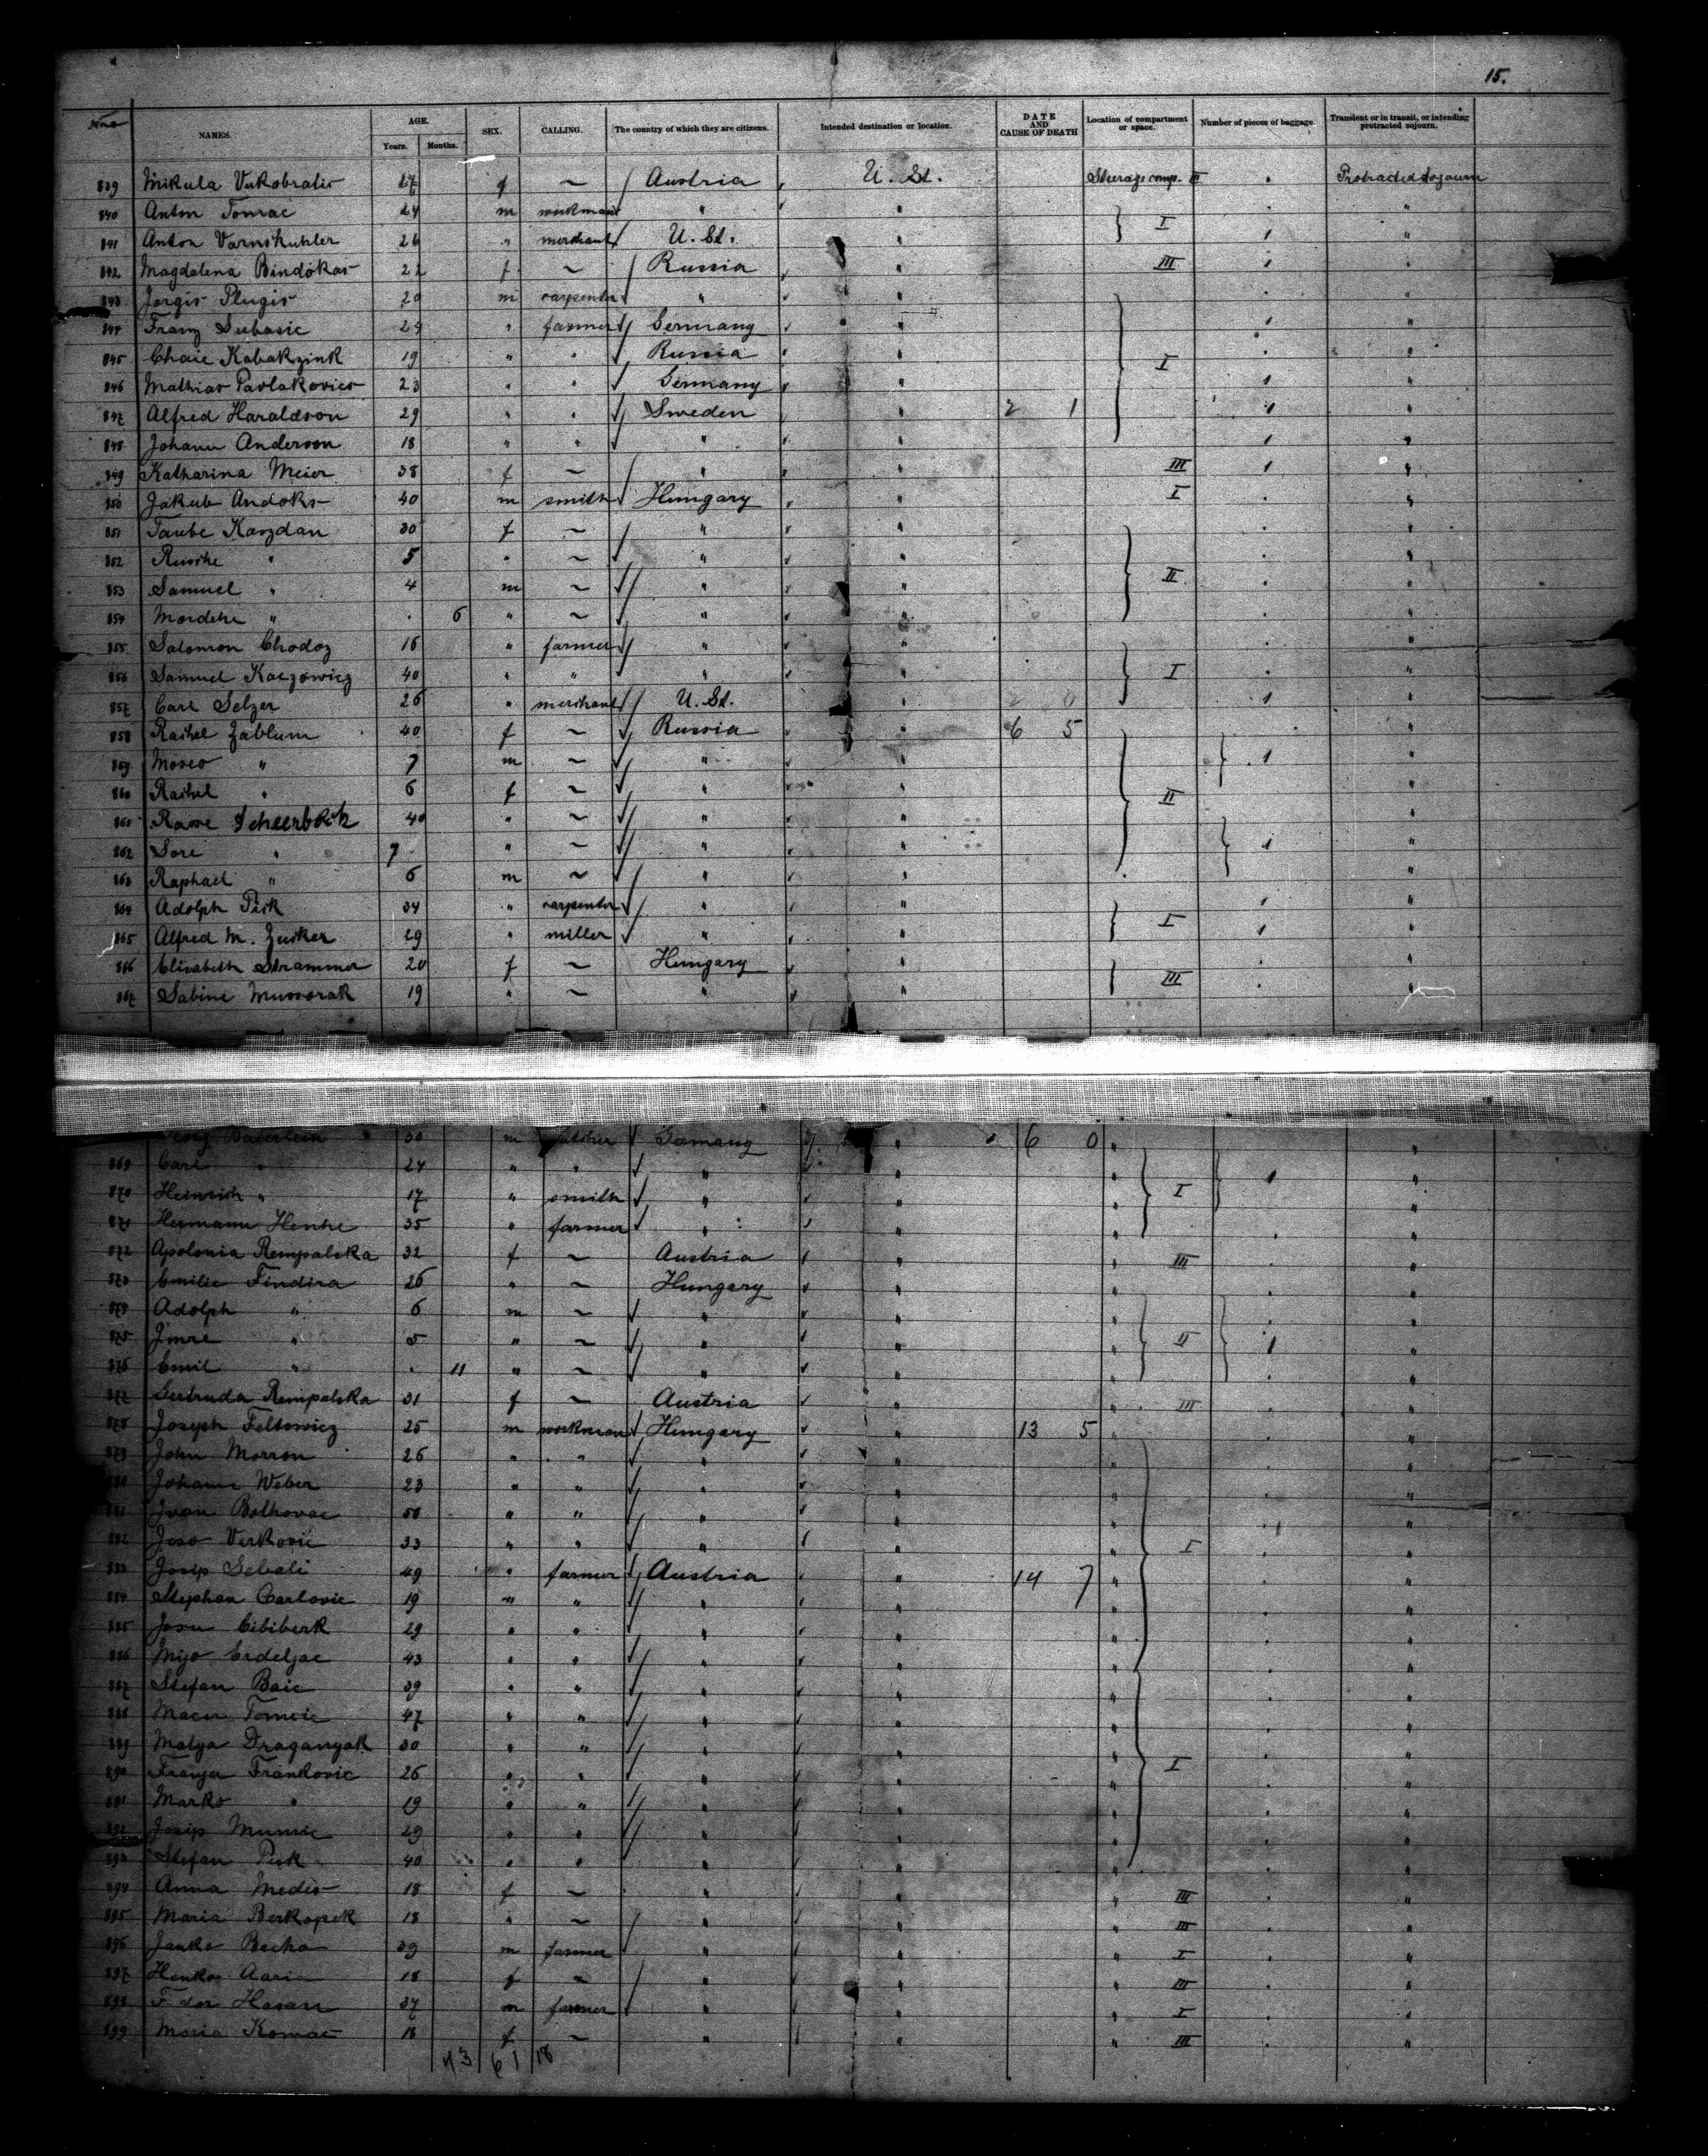 15.
Nro NAMES. AGE. Years. Months. SEX. CALLING. The country of which they are citizens. Intended destination or location. DATE AND CAUSE OF DEATH Location of compartment or space. Number of pieces of baggage. Transient or in transit, or intending protracted sojourn.
839 Mikula Vukobratic 27 f ~ Austria U. St. Steerage comp. III Protracted sojourn
840 Anton Tomac 24 m workman " " I "
841 Anton Varnskuhler 26 " merchant U. St. " 1 "
842 Magdalena Bindokas 22 f ~ Russia " III 1 "
843 Jorgis Plugis 20 m carpenter " " "
844 Franz Subasic 29 " farmer Germany " 1 "
845 Chaie Kabakzink 19 " " Russia " I "
846 Mathias Pavlakovics 23 " " Germany " 1 "
847 Alfred Haraldson 29 " " Sweden " 2 1 1 "
848 Johann Anderson 18 " " " " 1 "
849 Katharina Meier 38 f ~ " " III 1 "
850 Jakub Andoks 40 m smith Hungary " I "
851 Taube Kaszdan 30 f ~ " " "
852 Rusike " 5 " ~ " " "
853 Samuel " 4 m ~ " " II "
854 Mordche " . 6 " ~ " " "
855 Salomon Chodoz 16 " farmer " " "
856 Samuel Kaczowicz 40 " " " " I "
857 Carl Selzer 26 " merchant U. St. " 2 0 1 "
858 Rachel Zablum 40 f ~ Russia 6 5 "
859 Moses " 7 m ~ " " 1 "
860 Rachel " 6 f ~ " " II "
861 Rasse Scheerbock 40 " ~ " " "
862 Sore " 7 " ~ " " 1 "
863 Raphael " 6 m ~ " " "
864 Adolph Pick 34 " carpenter " " 1 "
865 Alfred M. Zucker 29 " miller " " I 1 "
866 Elisabeth Strammer 20 f ~ Hungary " "
867 Sabine Mussorak 19 " ~ " " III "
30 m Germany " 6 0 " "
869 Carl " 24 " " " " " 1 "
870 Heinrich " 17 " smith " " " I "
871 Hermann Henke 35 " farmer " " " "
872 Apolonia Rempalska 32 f ~ Austria " " III "
873 Emilie Findira 26 " ~ Hungary " " "
874 Adolph " 6 m ~ " " " "
875 Imre " 5 " ~ " " " II 1 "
876 Emil " . 11 " ~ " " " "
877 Gertruda Rempalska 31 f ~ Austria " " III "
878 Joseph Feltowicz 25 m workman Hungary " 13 5 " "
879 John Morron 26 " " " " " "
880 Johann Weber 23 " " " " " "
881 Ivan Bolkovac 50 " " " " " "
882 Joso Verkovic 33 " " " " " I "
883 Josip Sebali 49 " farmer Austria " 14 7 " "
884 Stephan Carlovic 19 " " " " " "
885 Josu Cibiberk 29 " " " " " "
886 Mijo Erdeljac 43 " " " " " "
887 Stefan Baic 39 " " " " " "
888 Macu Tomcic 47 " " " " " "
889 Malya Draganyak 30 " " " " " "
890 Franja Frankovic 26 " " " " " I "
891 Marko " 19 " " " " " "
892 Josip Mumic 29 " " " " " "
893 Stefan Pick 40 " " " " " "
894 Anna Medic 18 f ~ " " " III "
895 Maria Berkopek 18 " ~ " " " III "
896 Janko Becha 39 m farmer " " " I "
897 18 f ~ " " " III "
898 37 m farmer " " " I "
899 Maria Komac 18 f ~ " " " III "
43 61 18